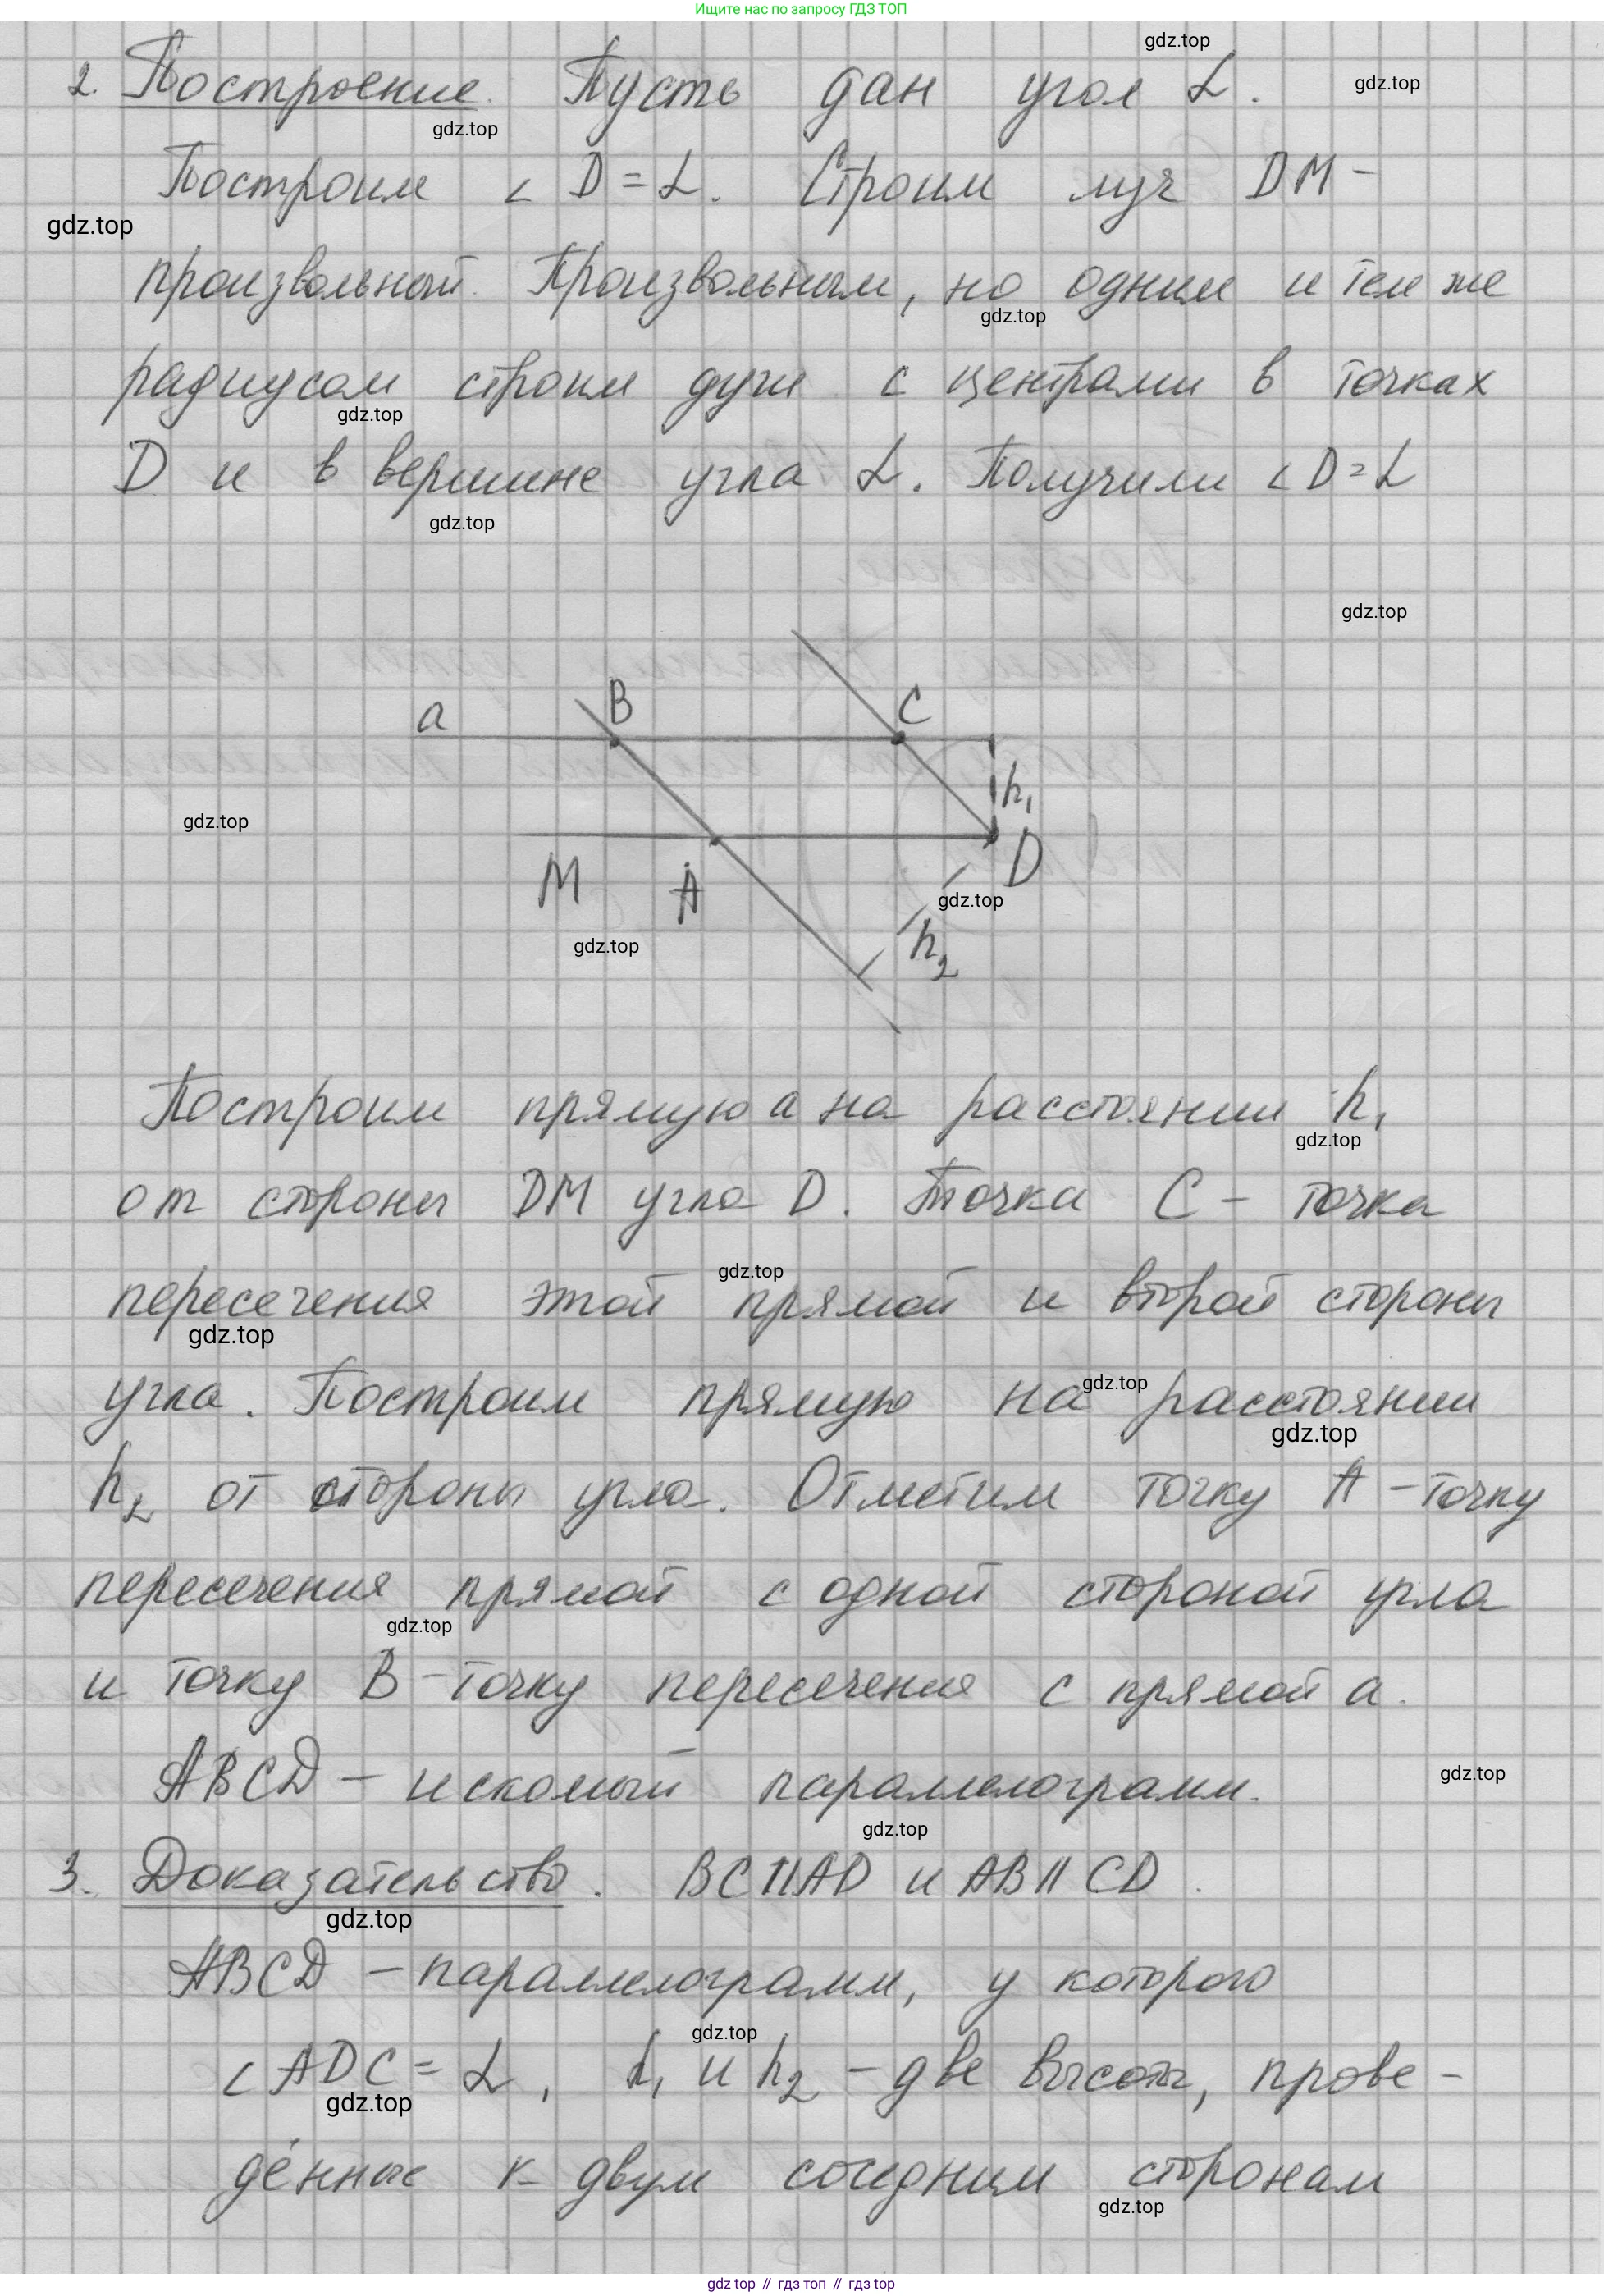 Ищите нас по запросу ГДЗ ТОП
gdz.top
2. Построение. Пусть дан угол α.
gdz.top
gdz.top
Построим ∠ D = α. Строим луч DM –
gdz.top
произвольный. Произвольным, но одним и тем же
gdz.top
радиусом строим дуги с центрами в точках
gdz.top
D и в вершине угла α. Получили ∠ D = α
gdz.top
gdz.top
a B C
h₁
gdz.top
M A D
gdz.top
h₂
gdz.top
Построим прямую a на расстоянии h₁
gdz.top
от стороны DM угла D. Точка C – точка
gdz.top
пересечения этой прямой и второй стороны
gdz.top
gdz.top
угла. Построим прямую на расстоянии
gdz.top
h₂ от стороны угла. Отметим точку A – точку
пересечения прямой с одной стороной угла
gdz.top
и точку B – точку пересечения с прямой a.
gdz.top
ABCD – искомый параллелограмм.
gdz.top
3. Доказательство. BC || AD и AB || CD.
gdz.top
ABCD – параллелограмм, у которого
gdz.top
∠ ADC = α, h₁ и h₂ – две высоты, прове-
gdz.top
дённые к двум соседним сторонам
gdz.top
gdz top // гдз топ // гдз top